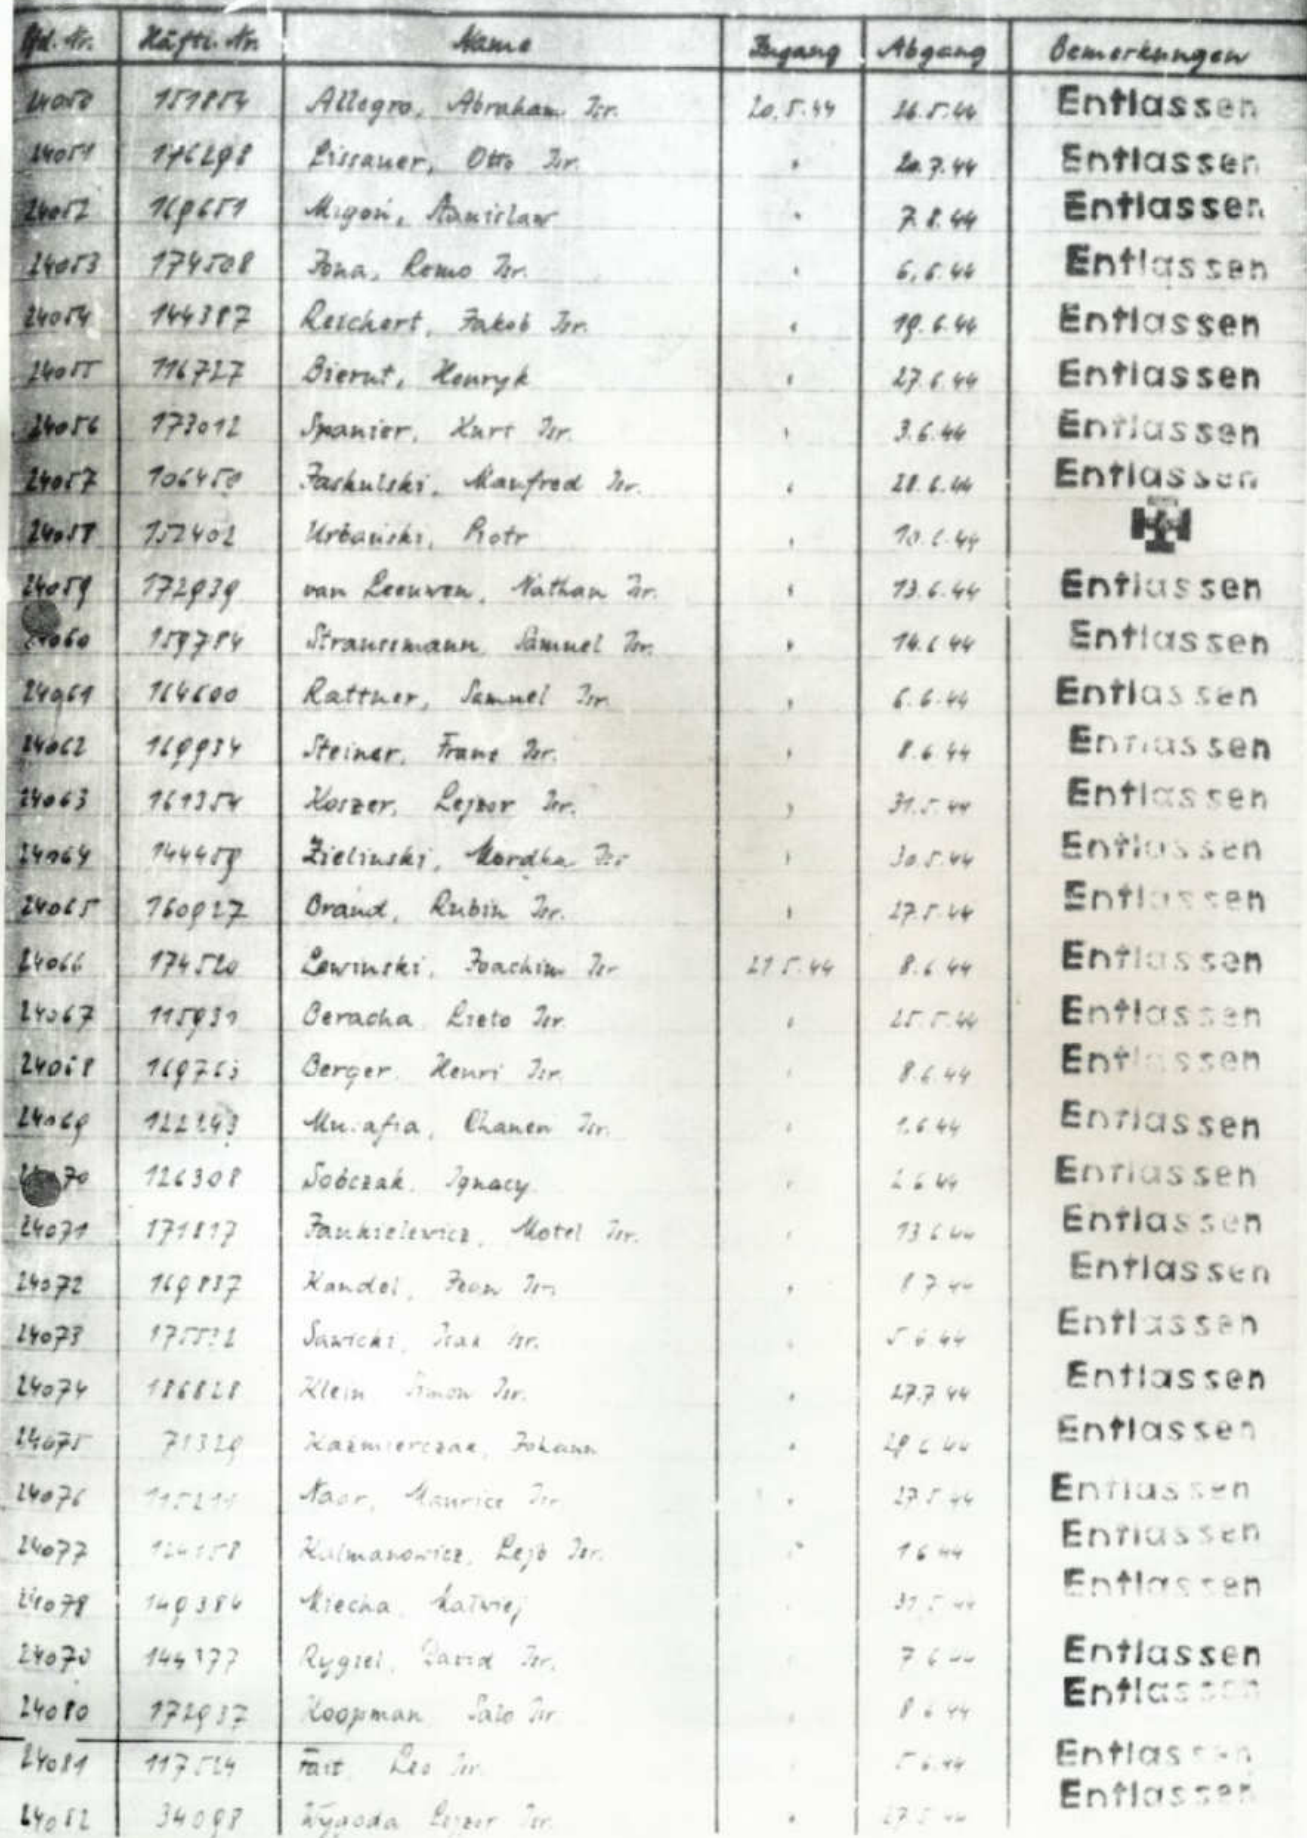 lfd. Nr. Häftl. Nr. Name Zugang Abgang Bemerkungen
24050 151854 Allegro, Abraham Isr. 20.5.44 26.5.44 Entlassen
24051 176298 Lissauer, Otto Isr. " 20.7.44 Entlassen
24052 169651 Migoń, Stanislaw " 7.8.44 Entlassen
24053 174508 Jona, Remo Isr. " 6.6.44 Entlassen
24054 144387 Reichert, Jakob Isr. " 19.6.44 Entlassen
24055 116727 Bierut, Henryk " 27.6.44 Entlassen
24056 173012 Spanier, Kurt Isr. " 3.6.44 Entlassen
24057 106450 Jaskulski, Manfred Isr. " 28.6.44 Entlassen
24058 152402 Urbański, Piotr " 10.6.44
24059 172939 van Leeuwen, Nathan Isr. " 13.6.44 Entlassen
24060 159784 Straussmann, Samuel Isr. " 14.6.44 Entlassen
24061 164600 Rattner, Samuel Isr. " 6.6.44 Entlassen
24062 169934 Steiner, Franz Isr. " 8.6.44 Entlassen
24063 161354 Koszer, Lejzor Isr. " 31.5.44 Entlassen
24064 144459 Zielinski, Mordka Isr. " 30.5.44 Entlassen
24065 160927 Brand, Rubin Isr. " 27.5.44 Entlassen
24066 174520 Lewinski, Joachim Isr. 21.5.44 8.6.44 Entlassen
24067 115931 Beracha Lieto Isr. " 25.5.44 Entlassen
24068 169763 Berger, Henri Isr. " 8.6.44 Entlassen
24069 122293 Chanen Isr. " 1.6.44 Entlassen
24070 126308 Sobczak, Ignacy " 2.6.44 Entlassen
24071 171817 Jankielewicz, Motel Isr. " 13.6.44 Entlassen
24072 169837 Kandel, Isr. " 8.7.44 Entlassen
24073 Sawicki, Isak Isr. " 5.6.44 Entlassen
24074 186828 Klein Simon Isr. " 27.7.44 Entlassen
24075 71329 Kaźmierczak, Johann " 29.6.44 Entlassen
24076 Naar, Maurice Isr. " 27.5.44 Entlassen
24077 Kalmanowicz, Lejb Isr. " 1.6.44 Entlassen
24078 149386 Miecha, Matwiej 31.5.44 Entlassen
24079 144377 Rygiel, David Isr. 7.6.44 Entlassen
24080 172937 Koopman Salo Isr. " 8.6.44 Entlassen
24081 117524 Fait Leo Isr. " 5.6.44 Entlassen
24082 34098 Wygoda Lejzor Isr. " 27.5.44 Entlassen